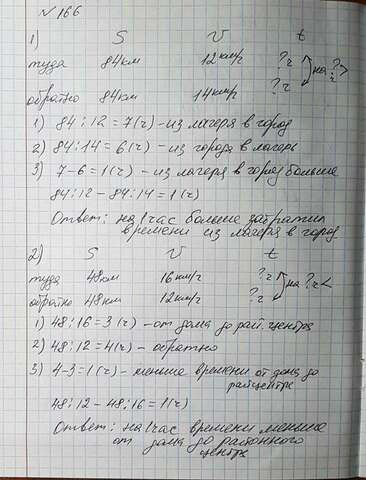 №166
1) S V t
туда 84км 12км/ч ?ч на ?ч >
обратно 84км 14км/ч ?ч
1) 84:12=7(ч)-из лагеря в город
2) 84:14=6(ч)- из города в лагерь
3) 7-6=1(ч)-из лагеря в город больше
84:12-84:14=1(ч)
Ответ: на 1час больше затратил
времени из лагеря в город
2) S V t
туда 48км 16км/ч ?ч на ?ч <
обратно 48км 12км/ч ?ч
1) 48:16=3(ч)-от дома до рай.центра
2) 48:12=4(ч)- обратно
3) 4-3=1(ч)- меньше времени от дома до
райцентра
48:12-48:16=1(ч)
Ответ: на 1час времени меньше
от дома до районного
центра